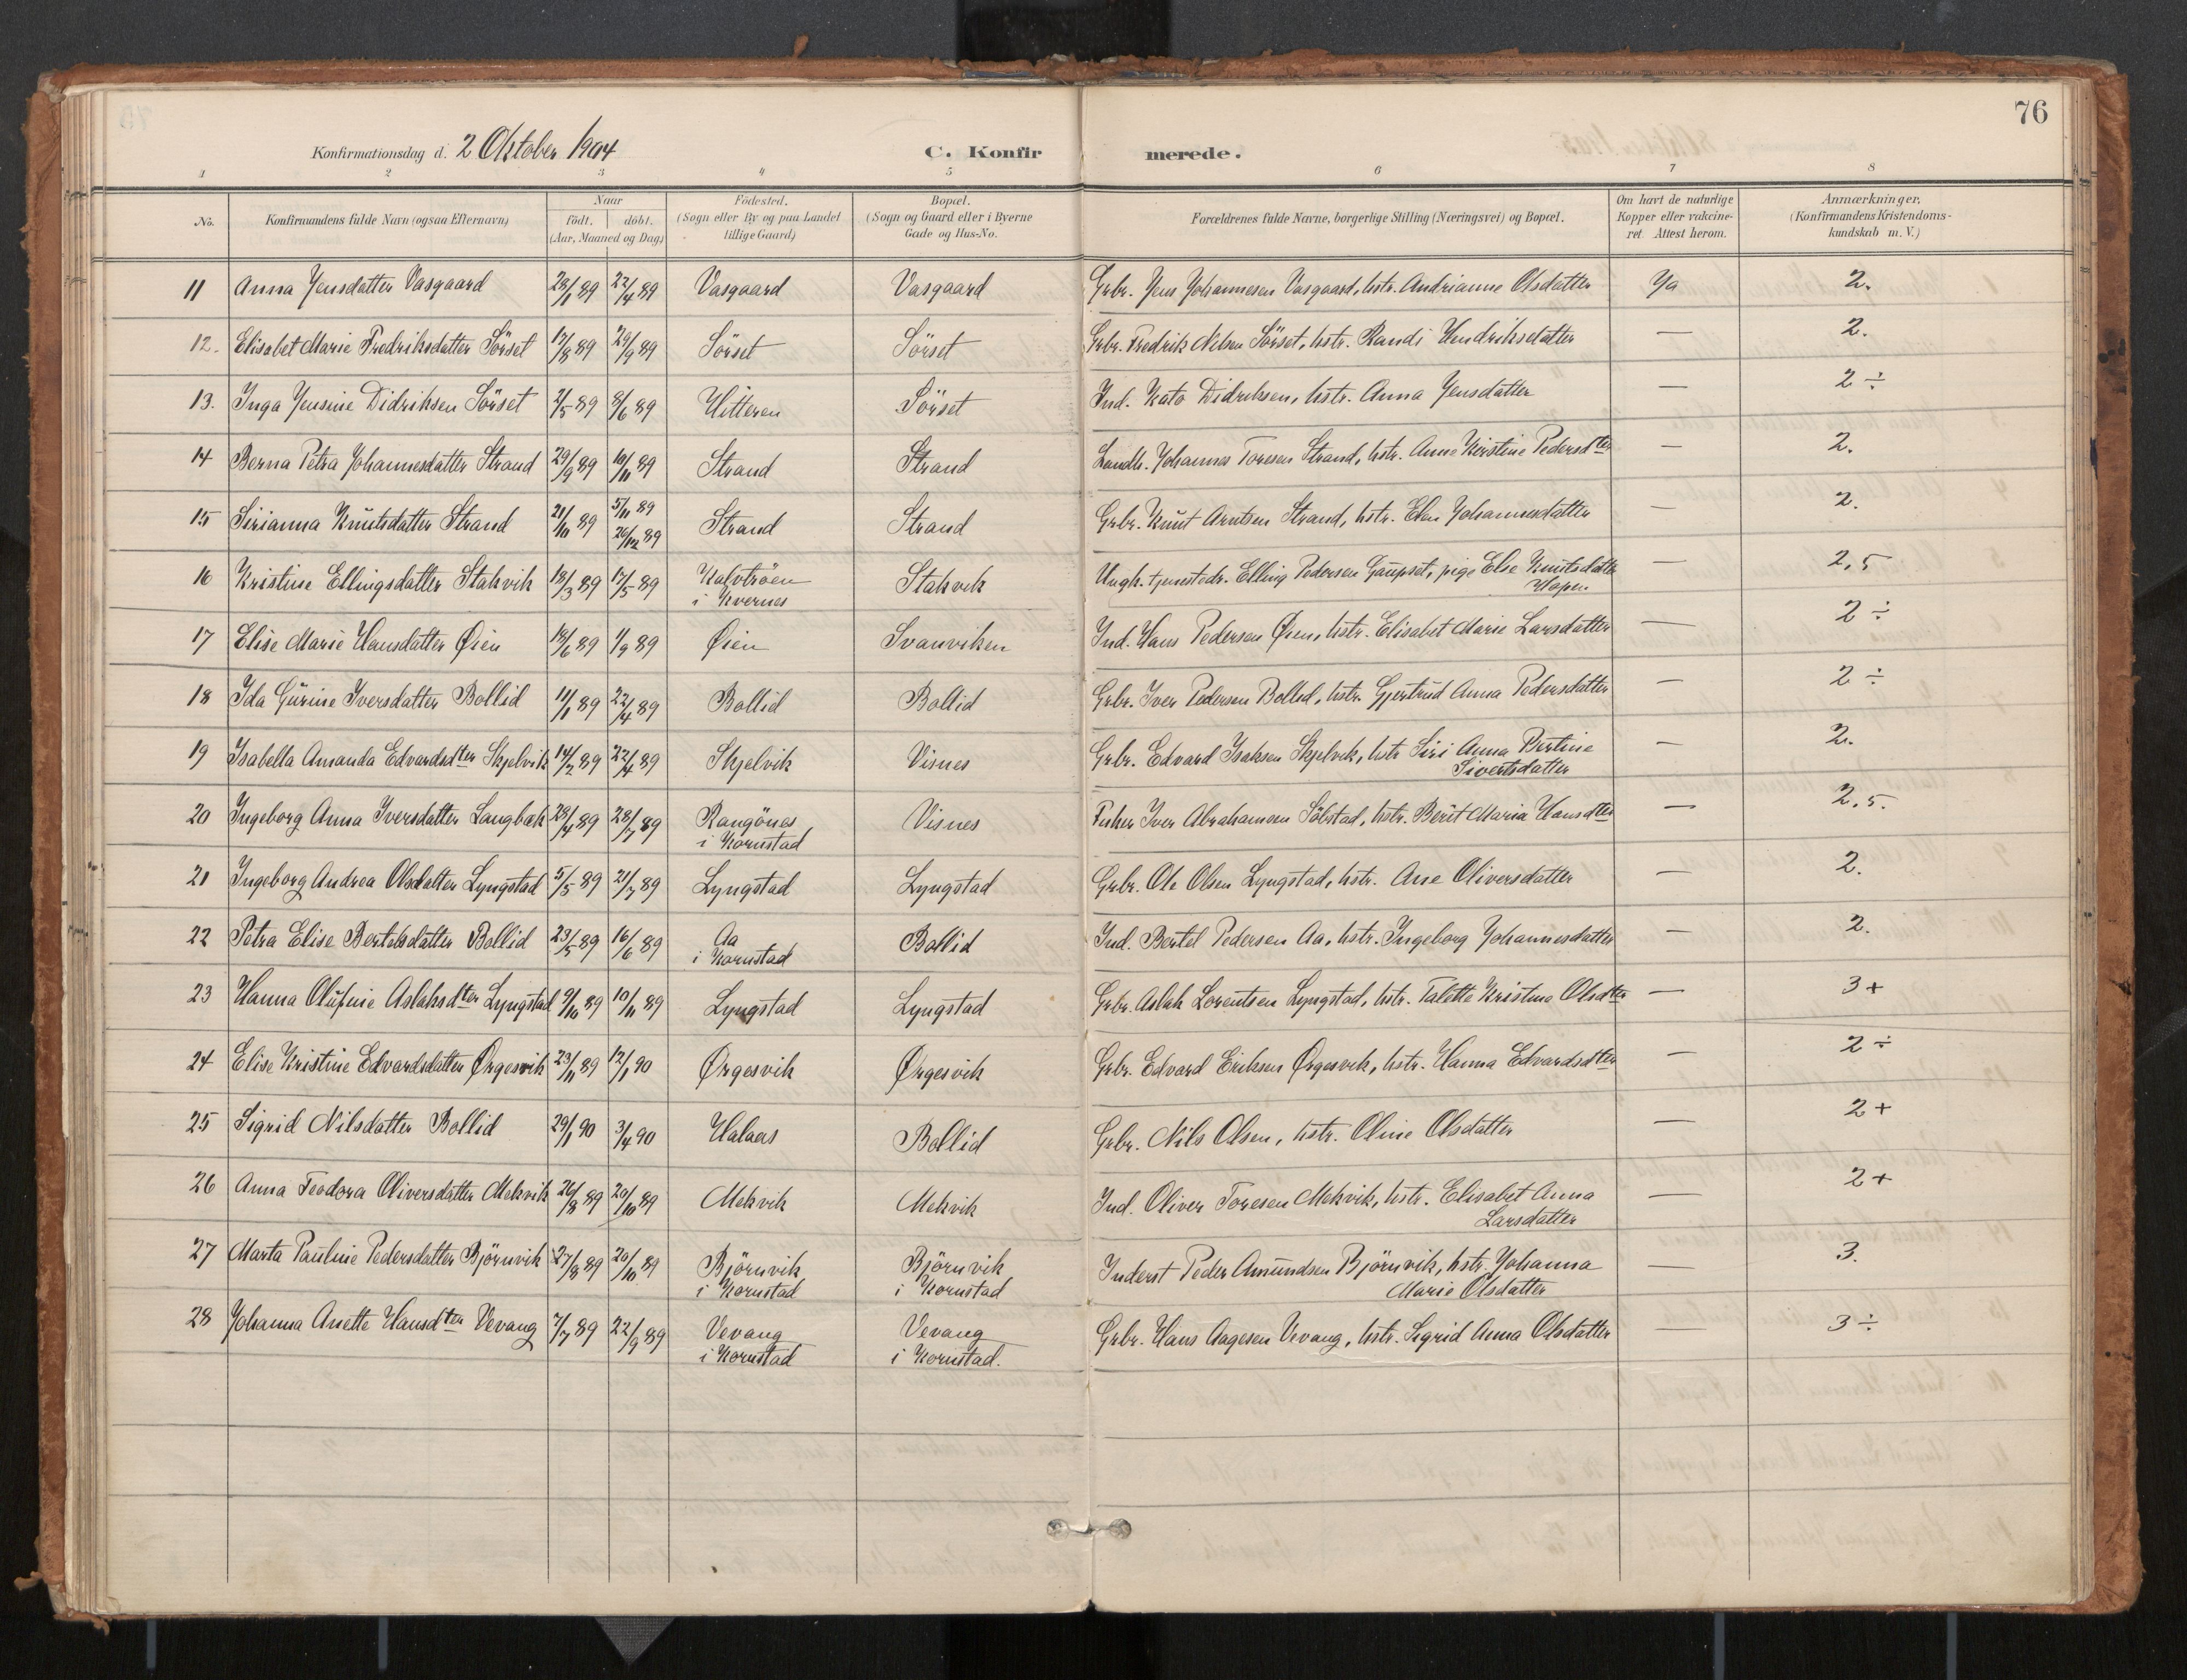 76
Konfirmationsdag d. 2 Oktober 1904
C. Konfirmerede.
1 2 3 4 5 6 7 8
No.
Konfirmandens fulde Navn (ogsaa Efternavn)
Naar
födt. döbt.
(Aar, Maaned og Dag)
Födested.
(Sogn eller By og paa Landet
tillige Gaard)
Bopæl.
(Sogn og Gaard eller i Byerne
Gade og Hus-No.
Forældrenes fulde Navne, borgerlige Stilling (Næringsvei) og Bopæl.
Om havt de naturlige
Kopper eller vakcine-
ret Attest herom.
Anmærkninger.
(Konfirmandens Kristendoms-
kundskab m. V.)
11 Anna Jensdatter Vasgaard 28/1 89 22/4 89 Vasgaard Vasgaard Grbr. Jens Johannesen Vasgaard, hstr. Andrianne Olsdatter Ja 2.
12. Elisabet Marie Fredriksdatter Sörset 17/8 89 29/9 89 Sörset Sörset Grbr. Fredrik Nilsen Sörset, hstr. Randi Hendriksdatter — 2.
13. Inga Jensine Didriksen Sörset 2/5 89 8/6 89 Hitteren Sörset Ind. Kato Didriksen, hstr. Anna Jensdatter — 2 ÷
14 Berna Petra Johannesdatter Strand 29/9 89 10/11 89 Strand Strand Landh. Johannes Toresen Strand, hstr. Anne Kirstine Pedersdter — 2.
15 Sirianna Knutsdatter Strand 21/10 89 5/11 89 26/12 89 Strand Strand Grbr. Knut Arntsen Strand, hstr. Elen Johannesdatter — 2.
16 Kristine Ellingsdatter Stakvik 18/3 89 17/5 89 Kalvtröen
i Kvernes Stakvik Ungk. tjenestedr. Elling Pedersen Gaupset, pige Else Knutsdatter
Hopen — 2,5
17 Elise Marie Hansdatter Øien 18/6 89 1/9 89 Øien Svanviken Ind. Hans Pedersen Øien, hstr. Elisabet Marie Larsdatter — 2 ÷
18 Ida Gurine Iversdatter Bollid 11/1 89 22/4 89 Bollid Bollid Grbr. Iver Pedersen Bollid, hstr. Gjertrud Anna Pedersdatter — 2 ÷
19 Isabella Amanda Edvardsdter Skjelvik 14/2 89 22/4 89 Skjelvik Visnes Grbr. Edvard Isaksen Skjelvik, hstr Siri Anna Birtine
Sivertsdatter — 2.
20 Ingeborg Anna Iversdatter Langbak 29/4 89 28/7 89 Rangönes
i Kornstad Visnes Fisker Iver Abrahamsen Sölstad, hstr. Berit Maria Hansdter — 2,5.
21 Ingeborg Andrea Olsdatter Lyngstad 5/5 89 21/7 89 Lyngstad Lyngstad Grbr. Ole Olsen Lyngstad, hstr. Ane Oliversdatter — 2.
22 Petra Elise Bertelsdatter Bollid 23/5 89 16/6 89 Aa
i Kornstad Bollid Ind. Bertel Pedersen Aa, hstr. Ingeborg Johannesdatter — 2.
23 Hanna Olufine Aslaksdter Lyngstad 9/10 89 10/11 89 Lyngstad Lyngstad Grbr. Aslak Lorentsen Lyngstad, hstr. Talette Kristine Olsdter — 3+
24 Elise Kristine Edvardsdatter Ørgesvik 23/11 89 12/1 90 Ørgesvik Ørgesvik Grbr. Edvard Eriksen Ørgesvik, hstr. Hanna Edvardsdter — 2 ÷
25 Sigrid Nilsdatter Bollid 29/1 90 3/4 90 Halaas Bollid Grbr. Nils Olsen, hstr. Oline Olsdatter — 2+
26 Anna Teodora Oliversdatter Mekvik 26/8 89 20/10 89 Mekvik Mekvik Ind. Oliver Toresen Mekvik, hstr. Elisabet Anna
Larsdatter — 2+
27 Marta Pauline Pedersdatter Björnvik 27/8 89 20/10 89 Björnvik
i Kornstad Björnvik
i Kornstad Inderst Peder Amundsen Björnvik, hstr. Johanna
Marie Olsdatter — 3.
28 Johanna Anette Hansdter Vevang 7/7 89 22/9 89 Vevang
i Kornstad Vevang
i Kornstad. Grbr. Hans Aagesen Vevang, hstr. Sigrid Anna Olsdatter — 3 ÷